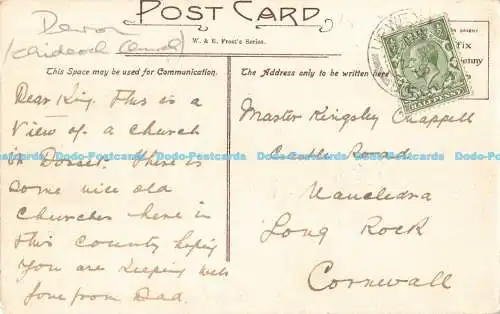 Devon
POST CARD
(Chideock Church)
W. & E. Frost's Series.
This Space may be used for Communication.
The Address only to be written here
Dear King. This is a
View of a church
in Dorset. There is
some nice old
Churches here in
this county hoping
you are keeping well
love from Dad.
Master Kingsley Chappell
Road
Long Rock
Cornwall
HALFPENNY
Dodo-Postcards Dodo-Postcards Dodo-Postcards Dodo-Postcards